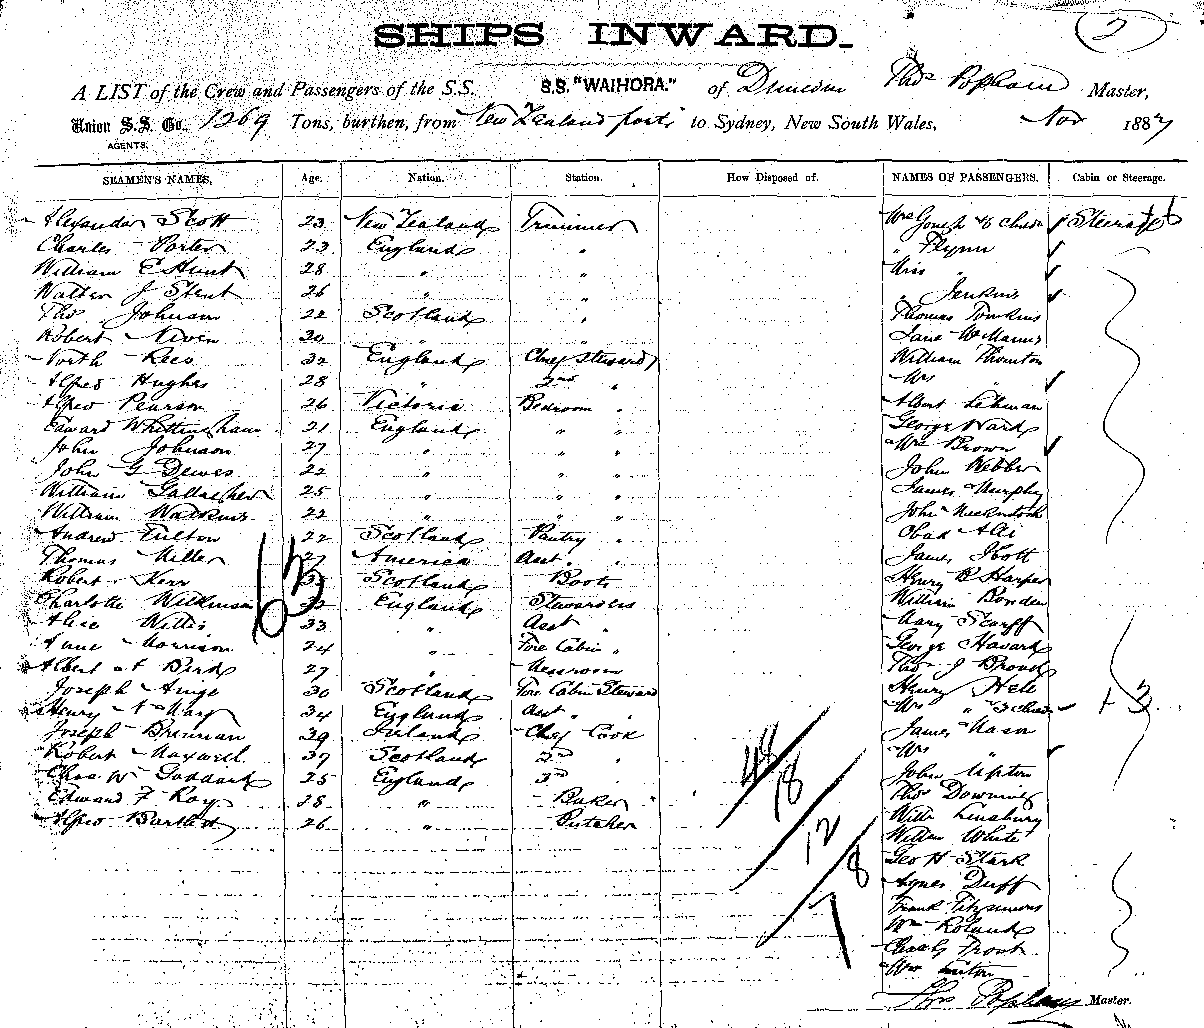 2
SHIPS INWARD.
A LIST of the Crew and Passengers of the S.S. S.S. "WAIHORA." of Dunedin Thos Popham Master,
Union S.S. Co., 1269 Tons, burthen, from New Zealand ports to Sydney, New South Wales, Nov 1887
AGENTS.
SEAMEN'S NAMES. Age. Nation. Station. How Disposed of. NAMES OF PASSENGERS. Cabin or Steerage.
Alexander Scott 23 New Zealand Trimmer Mrs & child Steerage
Charles Porter 23 England " " Flynn
William E Hunt 28 " " Miss "
Walter J Strut 26 " " " Jenkins
Thos Johnson 22 Scotland " Thomas Tomkins
Robert Niven 30 " " Jane McManus
North Rees 32 England Chief Steward William Thornton
Alfred Hughes 28 " 2nd " Mrs "
Alfred Pearson 26 Victoria Bedroom " Albert Lehman
Edward Whittingham 21 England " " George Ward
John Johnson 27 " " " Mrs Brown
John G Dewes 22 " " " John Webber
William Gallagher 25 " " " James Murphy
William Watkins 22 " " " John McIntosh
Andrew Fulton 22 Scotland Pantry " Obad Alli
Thomas Miller 27 America Asst " " James Scott
Robert Kerr Scotland Boots Henry B Harper
Charlotte Wilkinson England Stewardess William Bowden
Alice Willis 33 " Asst " Mary Scurff
Anne Morrison 24 " Fore Cabin " George Havard
Albert Bird 27 " Messroom Thos J Broud
Joseph Ange 30 Scotland Fore Cabin Steward Henry Hele
Henry N May 34 England Asst " " Mrs " 3 child + 3
Joseph Brennan 39 Ireland Chief Cook James Nason
Robert Maxwell 37 Scotland 2nd " Mrs "
Chas W Goddard 25 England 3rd " John Upton
Edward F Roy 28 " Baker Thos Downing
Alfred Bartlett 26 " Butcher Willm Linsbury
William White
Geo H Stark
Agnes Duff
Frank Fitzsimons
Wm Roland
Charly Front
Mrs
63
48
18
12
8
7
Thos Popham Master.